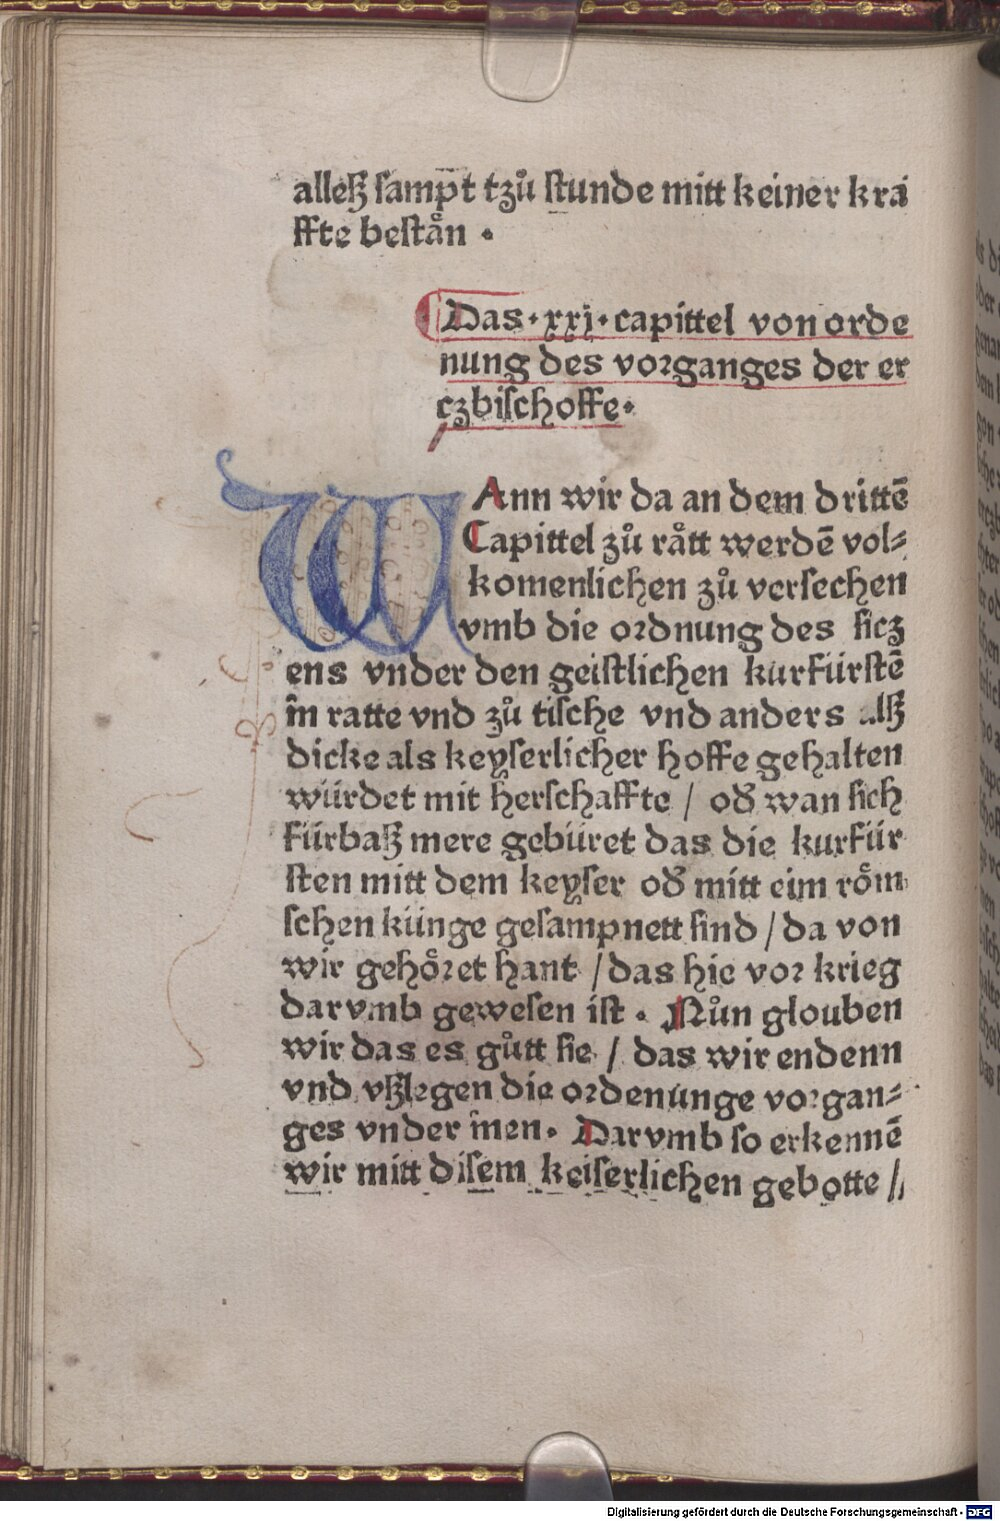 alleß ſamp̄t tzů ſtunde mitt keiner kra
ffte beſtån .
Das . xxj . capittel von orde
nung des vorganges der er
czbiſchoffe.
WAnn wir da an dem drittē
Capittel zů rått werdē vol⸗
komenlichen zů verſechen
vmb die ordnung des ſicz
ens vnder den geiſtlichen kurfürſtē
in ratte vnd zů tiſche vnd anders alß
dicke als keyſerlicher hoffe gehalten
würdet mit herſchaffte / od̕ wan ſich
fürbaß mere gebüret das die kurfür
ſten mitt dem keyſer od̕ mitt eim röm
ſchen künge geſampnett ſind / da von
wir gehöret hant / das hie vor krieg
darvmb geweſen iſt . Nůn glouben
wir das es gůtt ſie / das wir endenn
vnd vßlegen die ordenunge vorgan⸗
ges vnder inen. Darvmb ſo erkennē
wir mitt diſem keiſerlichen gebotte /
Digitalisierung gefördert durch die Deutsche Forschungsgemeinschaft - DFG